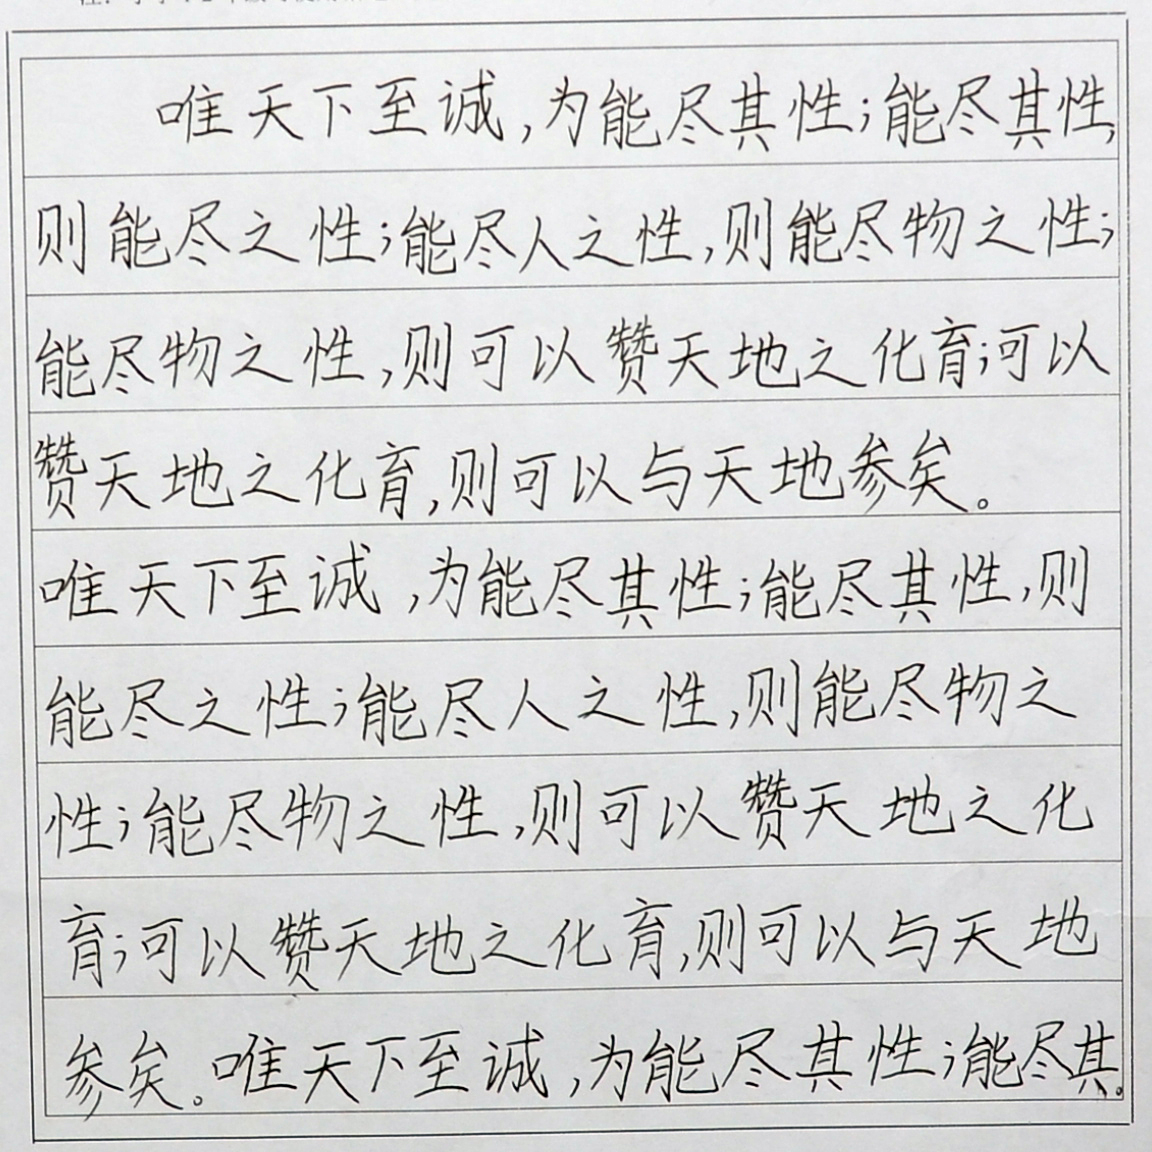 唯天下至诚,为能尽其性;能尽其性,
则能尽之性;能尽人之性,则能尽物之性;
能尽物之性,则可以赞天地之化育;可以
赞天地之化育,则可以与天地参矣。
唯天下至诚,为能尽其性;能尽其性,则
能尽之性;能尽人之性,则能尽物之
性;能尽物之性,则可以赞天地之化
育;可以赞天地之化育,则可以与天地
参矣。唯天下至诚,为能尽其性;能尽其。